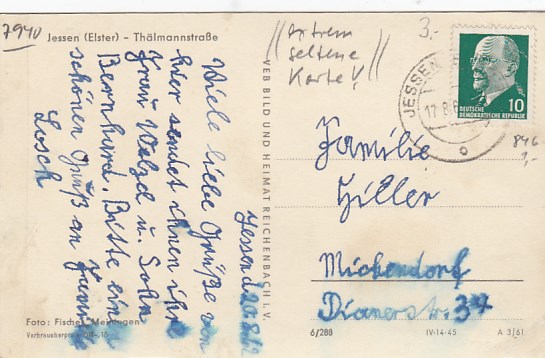 7940
Jessen (Elster) – Thälmannstraße
// extrem
seltene
Karte! //
3,-
JESSEN
17.8.6
10
DEUTSCHE
DEMOKRATISCHE REPUBLIK
846
Jessen d. 20.8.62
Viele liebe Grüße von
hier sendet Ihnen ihre
Frau Welzel u. Sohn
Bernhard. Bitte einen
schönen Gruß an
Losch
VEB BILD UND HEIMAT REICHENBACH I. V.
Familie
Hiller
Michendorf
34
Foto: Fischer, Meiningen
Verbraucherpreis
6/288
IV-14-45
A 3/61